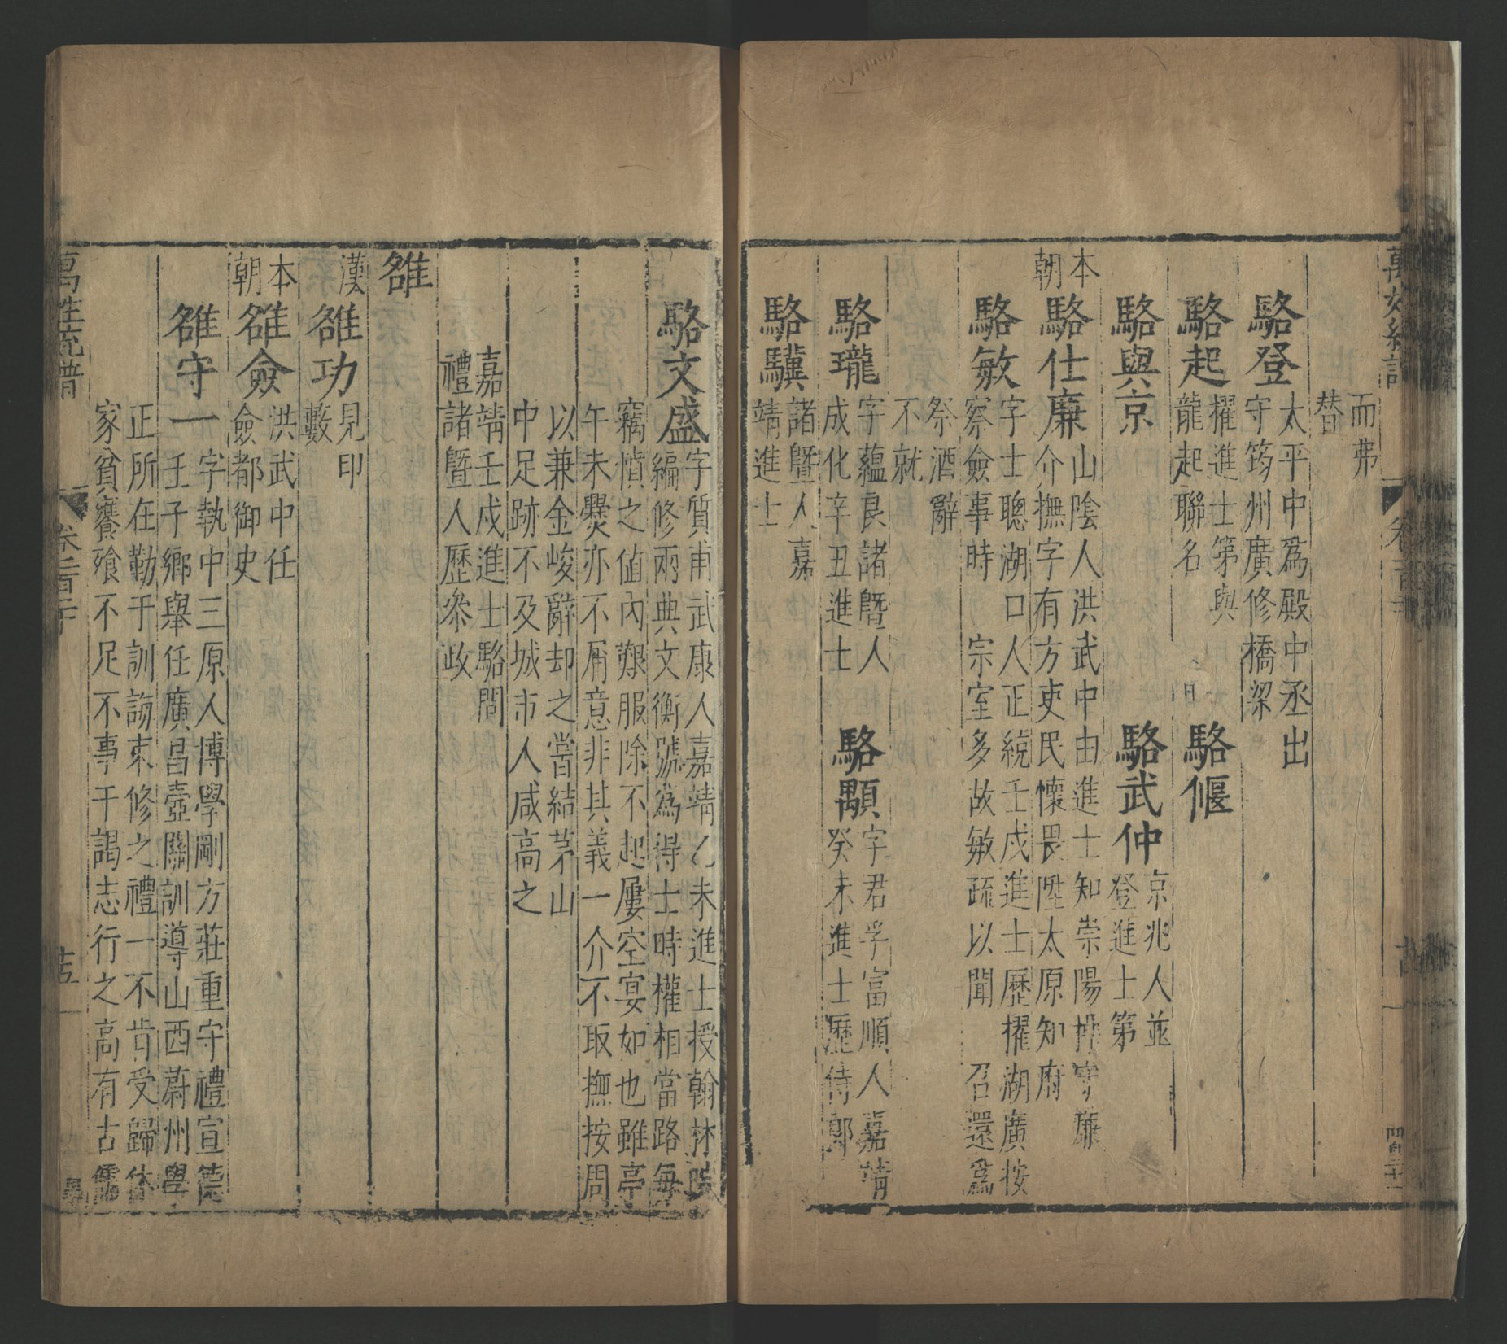 而弗
替
駱登
太平中爲殿中丞出
守筠州廣修橋梁
駱起
擢進士第與
龍起聯名
駱偃
駱與京
駱武仲
京兆人並
登進士第
本朝
駱仕廉
山陰人洪武中由進士知崇陽
介撫字有方吏民懷畏陞太原知府
駱敏
字士聰湖口人正統壬戌進士歷擢湖廣按
察僉事時 宗室多故敏疏以聞 召還爲
祭酒辭
不就
駱瓏
字蘊良諸曁人
成化辛丑進士
駱顒
字君孚富順人嘉靖
癸未進士歷侍郎
駱驥
諸曁人嘉
靖進士
駱文盛
字質甫武康人嘉靖乙未進士授翰林院
編修兩典文衡號為得士時權相當路每
竊憤之值內艱服除不起屢空宴如也雖亭
午未爨亦不屑意非其義一介不取撫按周
以兼金峻辭却之嘗結茅山
中足跡不及城市人咸高之
嘉靖壬戌進士駱問
禮諸曁人歷叅政
雒
漢
雒功
見印
藪
本朝
雒僉
洪武中任
僉都御史
雒守一
字執中三原人博學剛方莊重守禮宣德
壬子鄉舉任廣昌壺關訓導山西蔚州學
正所在勤于訓誨束修之禮一不肯受歸休
家貧饔飱不足不事干謁志行之高有古儒
萬姓統譜
卷之百二十
十五